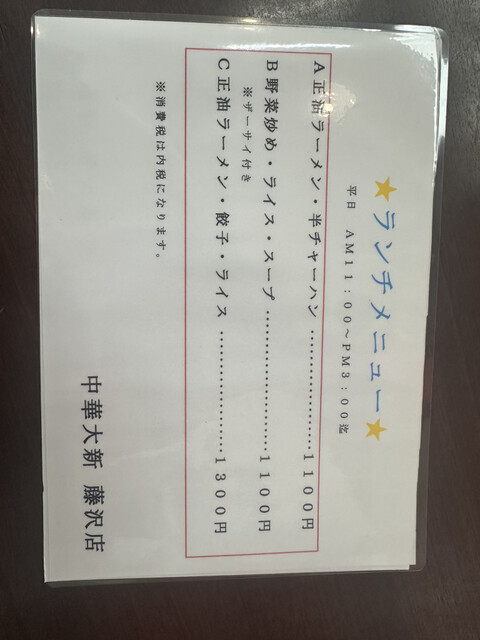 ★ランチメニュー★
平日　AM11：00～PM3：00迄
A正油ラーメン・半チャーハン …………………1100円
B野菜炒め・ライス・スープ …………………1100円
※ザーサイ付き
C正油ラーメン・餃子・ライス …………………1300円
※消費税は内税になります。
中華大新 藤沢店